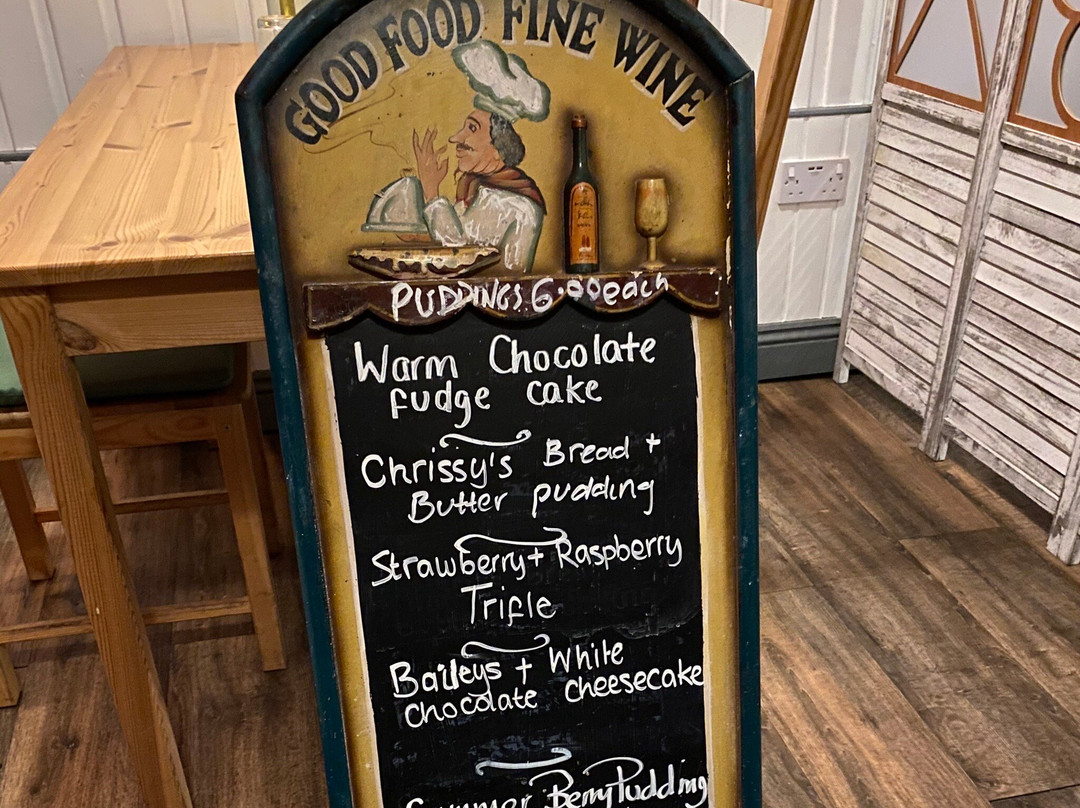 GOOD FOOD FINE WINE
PUDDINGS 6.00 each
Warm Chocolate
fudge cake
Chrissy's Bread +
Butter pudding
Strawberry + Raspberry
Trifle
Baileys + White
chocolate cheesecake
Summer Berry Pudding